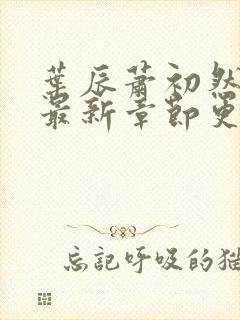 葉辰蕭初然
最新章節更
忘記呼吸的猫